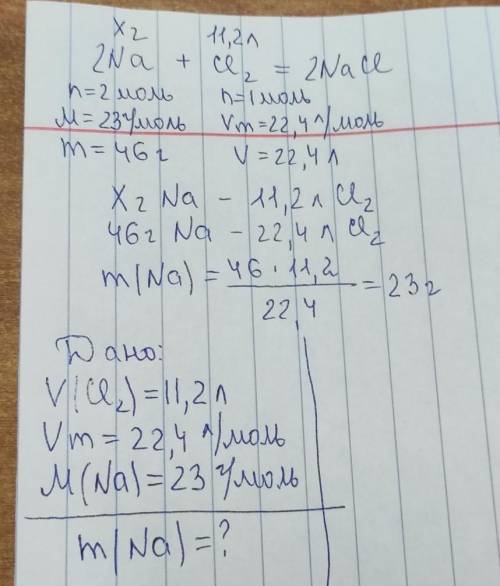 xг 11,2л
2Na + Cl2 = 2NaCl
n=2моль n=1моль
M=23г/моль Vm=22,4л/моль
m=46г V=22,4л
Xг Na - 11,2л Cl2
46г Na - 22,4л Cl2
m(Na) = 46·11,2 / 22,4 = 23г
Дано:
V(Cl2)=11,2л
Vm=22,4л/моль
M(Na)=23г/моль
m(Na)=?